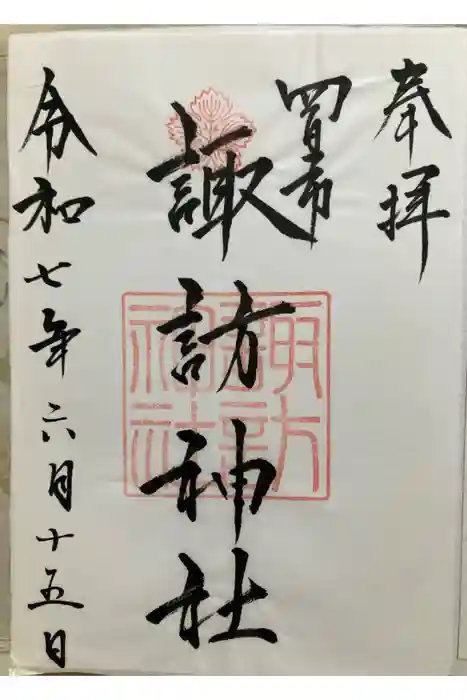 奉拝
四日市
諏訪神社
諏訪
神社
令和七年六月十五日